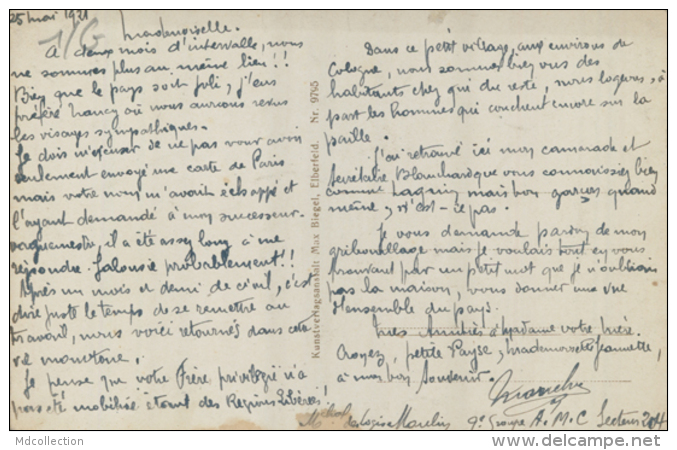 25 mai 1921
Mademoiselle.
A deux mois d'intervalle, nous
ne sommes plus au même lieu !!
Bien que le pays soit joli, j'eus
préféré Nancy où nous aurions revus
les visages sympathiques.
Je dois m'excuser de ne pas vous avoir
seulement envoyé une carte de Paris
mais votre nom m'avait échappé et
l'ayant demandé à mon successeur-
vaguemestre, il a été assez long à me
répondre. Jalousie probablement !!
Après un mois et demi de civil, c'est à
dire juste le temps de se remettre au
travail, nous voici retournés dans cette
vie monotone.
Je pense que votre Frère privilégié n'a
pas été mobilisé étant des Régions Libérées
Kunstverlagsanstalt Max Biegel, Elberfeld. Nr. 9795
Dans ce petit village, aux environs de
Cologne, nous sommes bien vus des
habitants chez qui du reste, nous logeons, à
part les hommes qui couchent encore sur la
paille.
J'ai retrouvé ici mon camarade et
Blanchard que vous connaissiez bien
comme taquin mais bon garçon quand
même, n'est-ce pas.
Je vous demande pardon de mon
gribouillage mais je voulais tout en vous
prouvant par un petit mot que je n'oubliais
pas la maison, vous donner une vue
d'ensemble du pays.
Mes Amitiés à Madame votre Mère.
Croyez, petite Payse, Mademoiselle Jeannette,
à mon bon Souvenir.
Mal des Logis 9e Groupe A.M.C Secteur 204
Mdcollection
www.delcampe.net